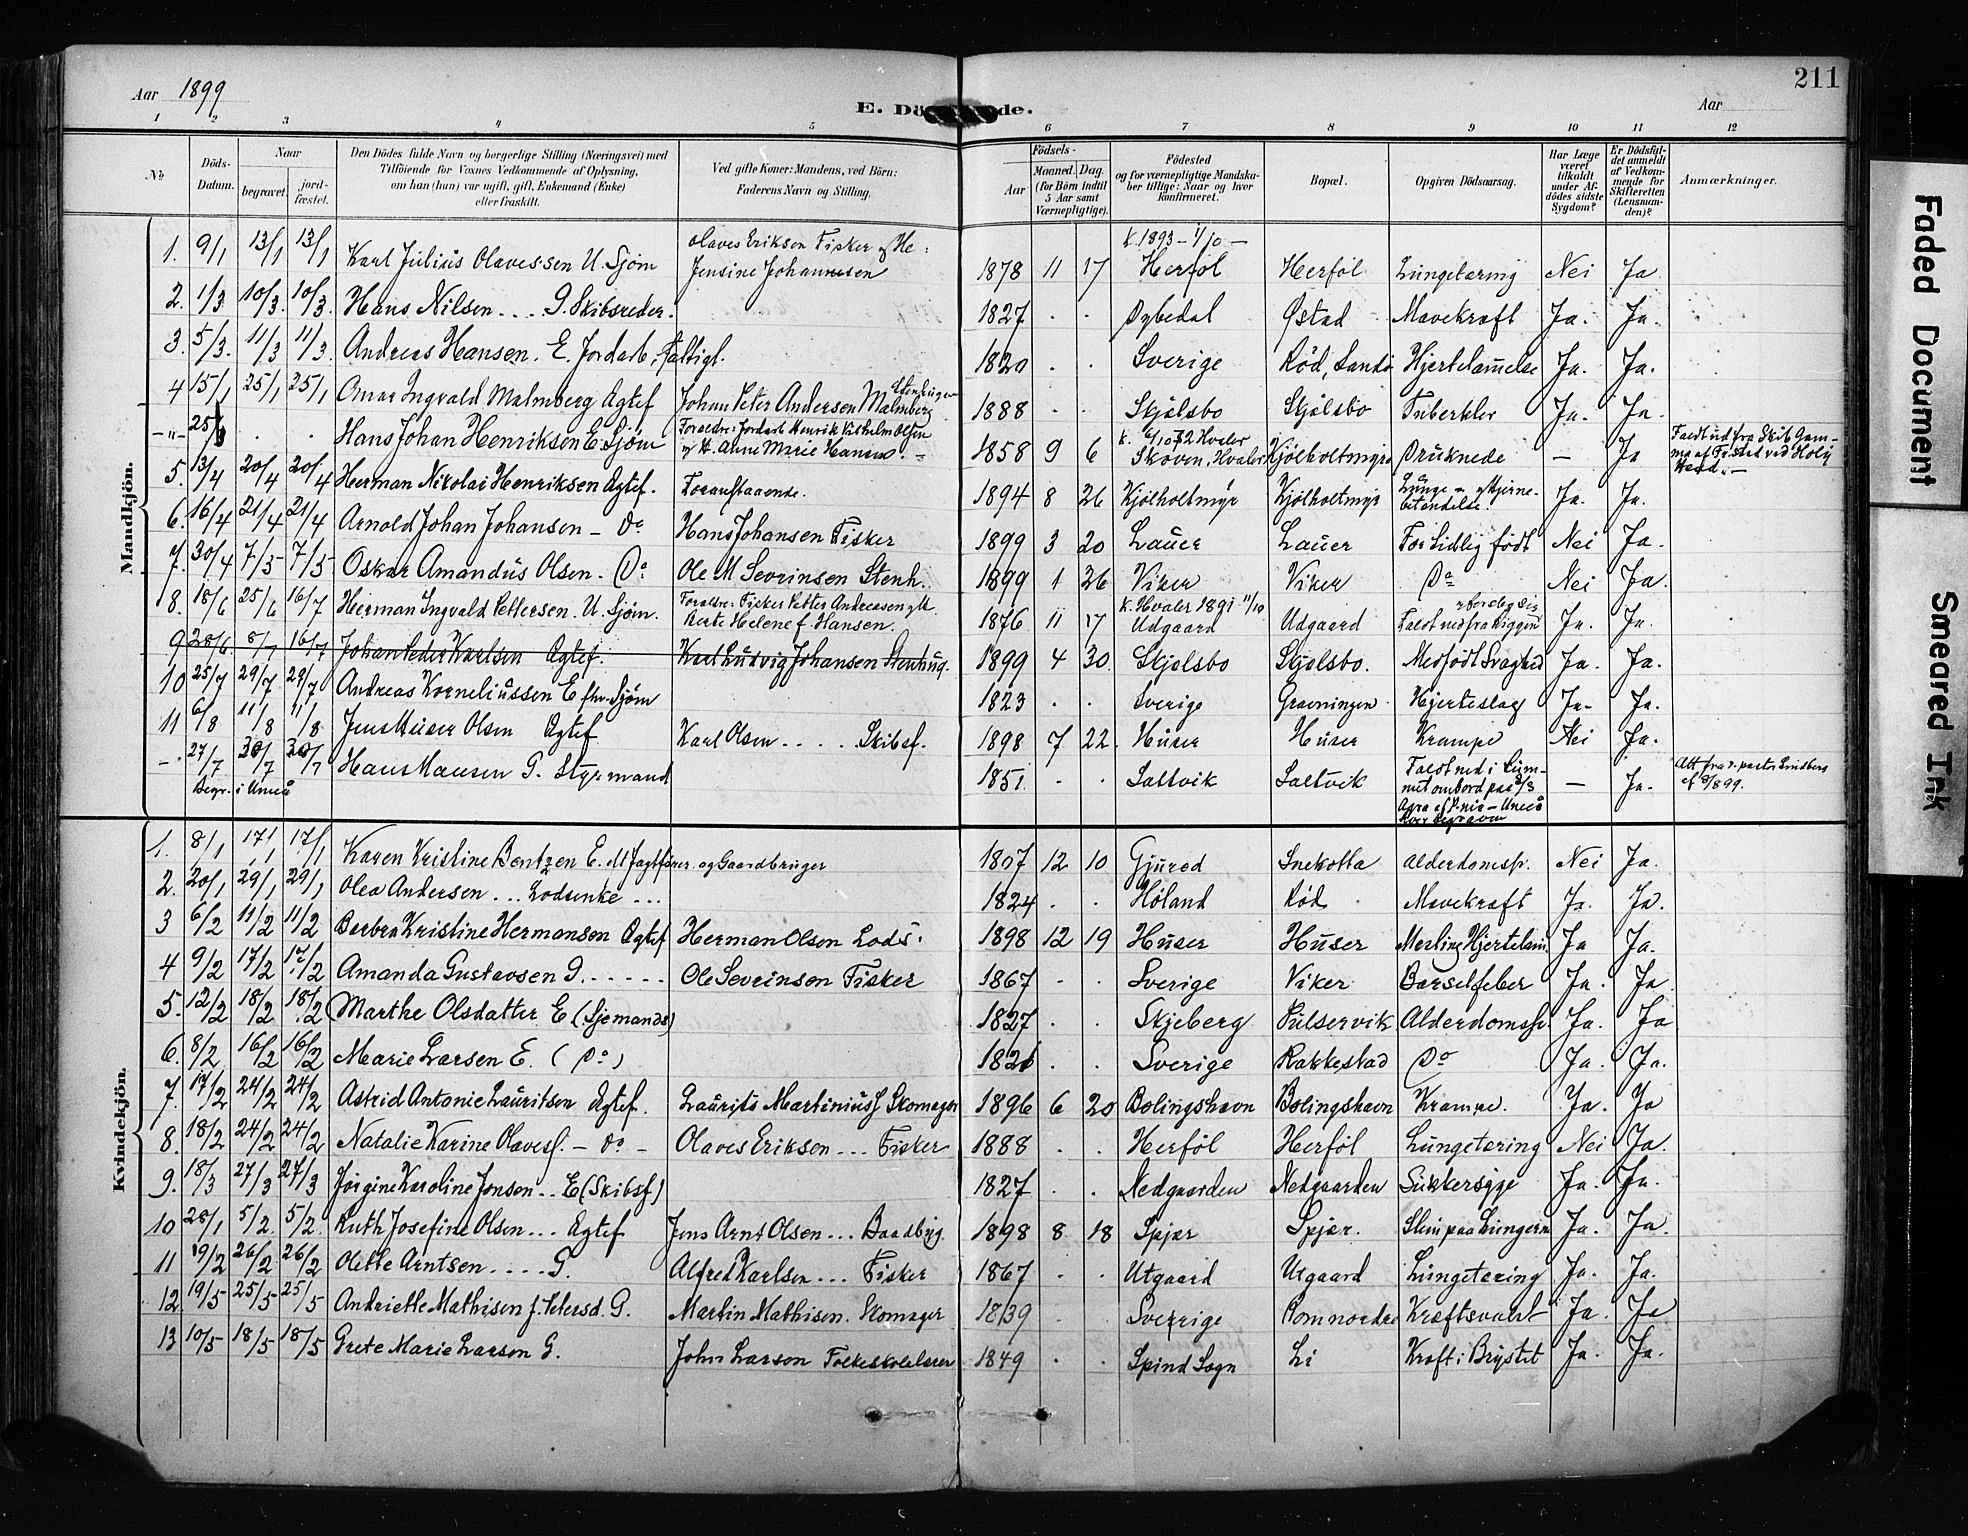 Aar 1899
E. Dö de.
Aar
211
1 2 3 4 5 6 7 8 9 10 11 12
No.
Döds-Datum.
Naar
begravet.
jord-fæstet.
Den Dödes fulde Navn og borgerlige Stilling (Næringsvei) med
Tilföiende for Voxnes Vedkommende af Oplysning,
om han (hun) var ugift, gift, Enkemand (Enke)
eller fraskilt.
Ved gifte Koner: Mandens, ved Börn:
Faderens Navn og Stilling.
Födsels-
Aar
Maaned. Dag.
(for Börn indtil
5 Aar samt
Værnepligtige).
Födested
og for værnepligtige Mandska-
ber tillige: Naar og hvor
konfirmeret.
Bopæl.
Opgiven Dödsaarsag.
Har Læge
været
tilkaldt
under Af-
dödes sidste
Sygdom?
Er Dödsfal-
det anmeldt
af Vedkom-
mende for
Skifteretten
(Lensman-
den)?
Anmærkninger.
Mandkjön.
Olaves Eriksen Fisker og He: K. 1893 – 1/10 –
1. 9/1 13/1 13/1 Karl Julius Olavessen U. Sjøm Jensine Johannesen 1878 11 17 Herføl Herføl Lungetæring Nei Ja
2. 1/3 10/3 10/3 Hans Nilsen - - - G. Skibsreder. 1827 . . Dybedal Østad Mavekræft Ja. Ja.
3. 5/3. 11/3 11/3. Andreas Hansen. E. Jordarb. Fattigl. 1820 . . Sverige Rød, Sandø Hjertelamelse Ja. Ja.
4 15/1 25/1 25/1 Omar Ingvald Malmberg Ægtef Johan Peter Andersen Malmberg 1888 . . Skjølsbo Skjølsbo Tuberkler Ja. Ja.
-"- . . Hans Johan Henriksen E. Sjøm Foræld: Jordarb Henrik Vilhelm Olsen og H. Anne Marie Hansens. 1858 9 6 Skoven, Hvaler Kjølholtmyra Druknede — Ja
5. 13/4 20/4 20/4 Herman Nikolai Henriksen Ægtef. Foranstaaende. 1894 8 26 Kjølholtmyr Kjølholtmyr Lunge – og Hjerne-betændelse. Ja. Ja.
6. 16/4 21/4 21/4 Arnold Johan Johansen – Do Hans Johansen Fisker 1899 3 20 Lauer Lauer For tidlig født Nei Ja.
7. 30/4 7/5 7/5 Oskar Amandus Olsen. Do Ole M Sevrinsen Stenh. 1899 1 26 Viker Viker Do Nei Ja.
8. 18/6 25/6 16/7 Herman Ingvald Pettersen. U. Sjøm. Forældre: Fisker Petter Andreasen og H. Berte Helene f Hansen. K. Hvaler 1891 11/10 1876 11 17 Udgaard Udgaard Faldt ned fra Riggen Ja. Ja.
9 28/6 8/7 16/7 Johan Peder Karlsen Ægtef. Karl Ludvig Johansen Stenhug. 1899 4 30 Skjølsbo Skjølsbo. Medfødt Svaghed Ja. Ja.
10 25/7 29/7 29/7 Andreas Korneliussen E fhv. Sjøm 1823 . . Sverige Gravningen Hjerteslag Ja- Ja.
11 6/8 11/8 11/8 Jens Huser Olsen Ægtef Karl Olsen - - - - Skibsf. 1898 7 22. Huser Huser Krampe Nei Ja.
-. 27/7 30/7 30/7 Hans Hansen G. Styrmand 1851. . . Saltvik Saltvik Faldt ned i Rum-met ombord paa — Ja.
Begr. i Umeå
Kvindekjön.
1. 8/1 17/1 17/1 Karen Kristine Bentzen E. af Jagtfører og Gaardbruger 1807 12 10 Gjurød Snekotta Alderdomssv. Nei Ja.
2. 20/1 29/1 29/1 Olea Andersen - - - Lodsenke - - - 1824 . . Høland Rød Mavekræft Ja. Ja.
3 6/2 11/2 11/2 Barbra Kristine Hermansen Ægtef Herman Olsen Lods. 1898 12 19 Huser Huser Ja Ja.
4 9/2 17/2 17/2 Amanda Gustavsen G. - - - - - Ole Sevrinson Fisker 1867 - . Sverige Viker Barselfeber Ja. Ja
5. 12/2 18/2 18/2 Marthe Olsdatter E (Sjømands) 1827 . . Skjeberg Pulservik Alderdomssv. Ja. Ja
6. 8/2 16/2 16/2 Marie Larsen E. (Do) 1821 . . Sverige Rakkestad Do Ja. Ja.
7. 17/2 24/2 24/2 Astrid Antonie Lauritsen Ægtef. Laurits Martinius Skomager 1896 6 20 Bølingshavn Bølingshavn Krampe. Ja. Ja
8. 18/2 24/2 24/2 Natalie Karine Olaves. – Do – Olaves Eriksen - - - Fisker 1888 . . Herføl Herføl Lungetæring Nei Ja.
9. 18/3 27/3 27/3 Jørgine Karoline Jensen - - E (Skibsf) 1827 . . Nedgaarden Nedgaarden Sukkersyge Ja. Ja.
10 28/1 5/2. 5/2. Ruth Josefine Olsen - - - Ægtef Jens Arnt Olsen - - - Baadbyg. 1898 8 18 Spjær Spjær. Slim paa Lungerne Ja. Ja.
11 19/2 26/2 26/2 Olette Arntsen - - - - G. Alfred Karlsen - - - Fisker 1867 . . Utgaard Utgaard Lungetæring Ja. Ja.
12 19/5 25/5 25/5 Andriette Mathisen f. Petersd. G. Martin Mathisen. Skomager 1839 . . Sverige Romnordre Kræftsvulst Ja. Ja
13 10/5 18/5 18/5 Grete Marie Larson G. John Larson Folkeskolelærer 1849 . . Spind Sogn Li Kræft i Brystet Ja. Ja.
Faded Document
Smeared Ink